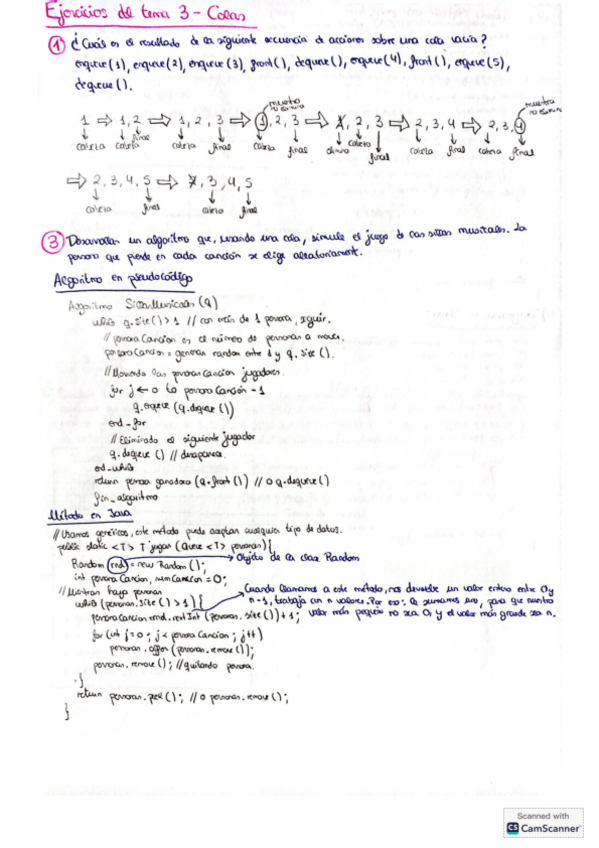 Ejercicios del tema 3 - Colas
① ¿Cuál es el resultado de la siguiente secuencia de acciones sobre una cola vacía?
enqueue(1), enqueue(2), enqueue(3), front(), dequeue(), enqueue(4), front(), enqueue(5),
dequeue().
muestra no elimina
muestra no elimina
1 ⇒ 1,2 ⇒ 1, 2, 3 ⇒ 1, 2, 3 ⇒ 1, 2, 3 ⇒ 2, 3, 4 ⇒ 2, 3, 4
cabeza cabeza final cabeza final cabeza final cabeza final cabeza final cabeza final
⇒ 2, 3, 4, 5 ⇒ 2, 3, 4, 5
cabeza final cabeza final
③ Desarrollar un algoritmo que, usando una cola, simule el juego de las sillas musicales. La
persona que pierde en cada canción se elige aleatoriamente.
Algoritmo en pseudocódigo
Algoritmo SillasMusicales (q)
while q.size() > 1 // con más de 1 persona, seguir.
// personaCancion es el número de personas a mover.
personaCancion = generar random entre 1 y q.size().
// Moviendo las personasCancion jugadores.
for j ← 0 to personaCanción - 1
q.enqueue (q.dequeue())
end_for
// Eliminado el siguiente jugador
q.dequeue () // desaparece.
end_while
return persona ganadora (q.front()) // o q.dequeue()
fin_algoritmo
Método en Java
// Usamos genéricos, este método puede aceptar cualquier tipo de datos.
public static <T> T jugar (Queue <T> personas) {
Random rnd = new Random(); → Objeto de la clase Random
int personaCancion, numCancion = 0;
// Mientras haya personas
while (personas.size() > 1) {
Cuando llamamos a este método, nos devuelve un valor entero entre 0 y
n-1, trabaja con n valores. Por eso: le sumamos uno, para que nuestro
valor más pequeño no sea 0, y el valor más grande sea n.
personaCancion = rnd.nextInt (personas.size()) + 1;
for (int j = 0; j < personaCancion; j++)
personas.offer (personas.remove());
personas.remove(); // quitando persona.
}
return personas.peek(); // o personas.remove();
}
Scanned with
CS CamScanner